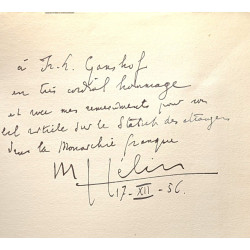 à Fr. L. Ganshof
en très cordial hommage
et avec mes remerciements pour son
bel article sur le Statut des étrangers
dans la Monarchie franque
M Hélin
17-XII-56.